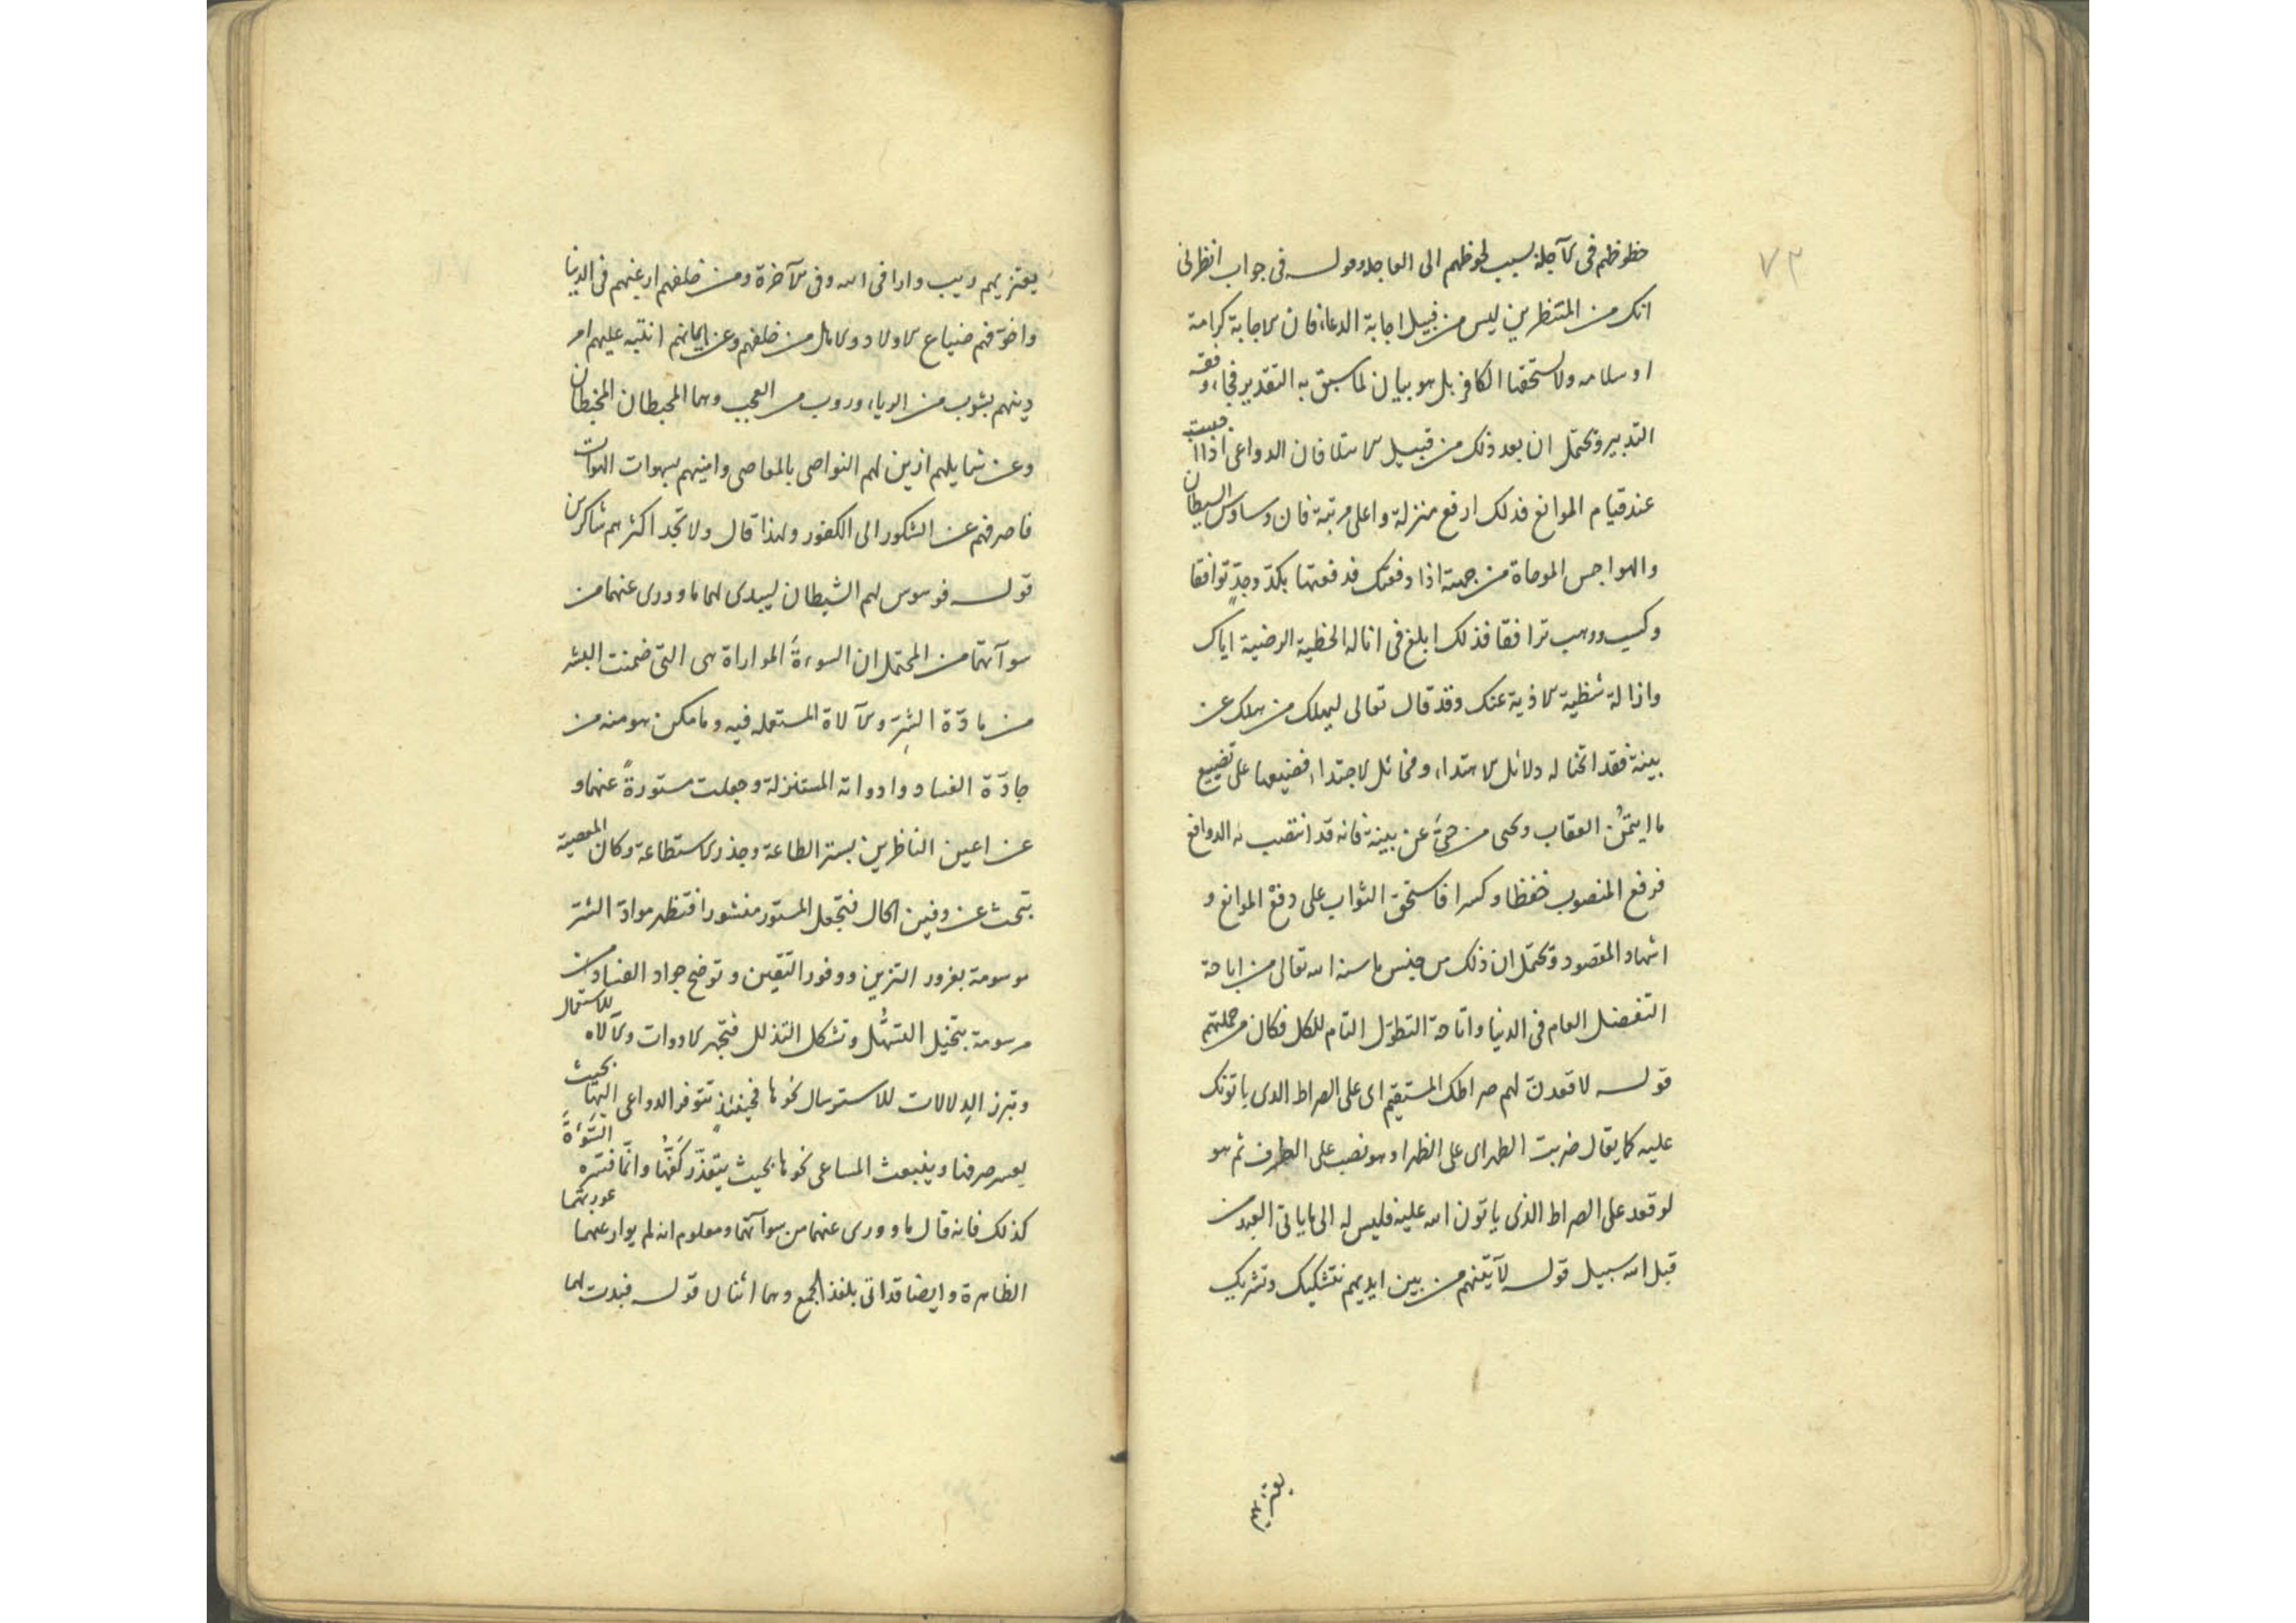 ٧٣
حظوظهم فى الآجلة بسبب لحوظهم الى العاجله وقوله فى جواب انظرنى
انك من المنتظرين ليس من قبيل اجابة الدعاء فان الاجابة كرامة
او سلامه ولا يستحقها الكافر بل هو بيان لما سبق به التقدير فجاء وفقه
التدبير ويحتمل ان يعد ذلك من قبيل الابتلا فان الدواعى اذا اجيبت
عند قيام الموانع فذلك ارفع منزلة واعلى مرتبة فان وساوس الشيطان
والهواجس الموحاة من جهته اذا دفعتك فدفعتها بكدّ وجدّ توافقا
وكسب ودهب ترافقا فذلك ابلغ فى انالة الحظية الرضية اياك
وازالة شظية الاذية عنك وقد قال تعالى ليهلك من هلك عن
بينة فقد اتحنا له دلائل الاهتداء ومخائل الاجتداء فضيعها على تضييع
ما ايتمن العقاب ويحيى من حىّ عن بينة فانه قد انتصب له الدوافع
فرفع المنصوب خفظا وكسرا فاستحق الثواب على دفع الموانع و
اشهاد المقصود ويحتمل ان ذلك من جنس ما سنه الله تعالى من اباحة
التفضل العام فى الدنيا واتاحة التطوّل التام للكل فكان من جملتهم
قوله لاقعدنّ لهم صراطك المستقيم اى على الصراط الذى ياتونك
عليه كما يقال ضربت الظهر اى على الظهر او هو نصب على الظرف ثم هو
لو قعد على الصراط الذى ياتون الله عليه فليس له الى ما ياتى العبد من
قبل الله سبيل قوله لآتينهم من بين ايديهم بتشكيك وتشريك
يعتريهم
يعتريهم ريب وارا فى الله وفى الآخرة ومن خلفهم ارغبهم فى الدنيا
واخوّفهم ضياع الاولاد والامال من خلفهم وعن ايمانهم اشبه عليهم امر
دينهم بشوب من الرياء وروب من العجب وهما المحبطان المخبطان
وعن شمايلهم ازين لهم النواصى بالمعاصى وامنيهم بسهوات الهوات
فاصرفهم عن الشكور الى الكفور ولهذا قال ولا تجد اكثرهم شاكرين
قوله فوسوس لهم الشيطان ليبدى لهما ما وورى عنهما من
سوآتهما من المحتمل ان السوءةَ المواراة هى التى ضمنت البشر
من مادّة الشر والآلاة المستعمله فيه وما مكن هو منه من
جادّة الفساد وادواته المستنزلة وجعلت مستورةً عنهما و
عن اعين الناظرين بستر الطاعة وجذر الاستطاعة وكان المعصية
تبحث عن دفين الحال فتجعل المستور منشورا فتظهر موادّ الشر
موسومة بغرور التزين ووفور التقين وتوضح جواد الفساد من
مرسومة بتخيل التسهّل وتشكل التذلل فتجهر الادوات والآلاه للاستعمال
وتبرز الدلالات للاسترسال نحوها فحينئذٍ تتوفر الدواعى اليها بحيث
يعسر صرفها وينبعث المساعى نحوها بحيث يتعذّر كفّها وانّما فسّره السوءةَ
كذلك فانه قال ما وورى عنهما من سوآتهما ومعلوم انه لم يوار عنهما عورتهما
الظاهرة وايضا قد اتى بلفظ الجمع وهما اثنان قوله فبدت لهما